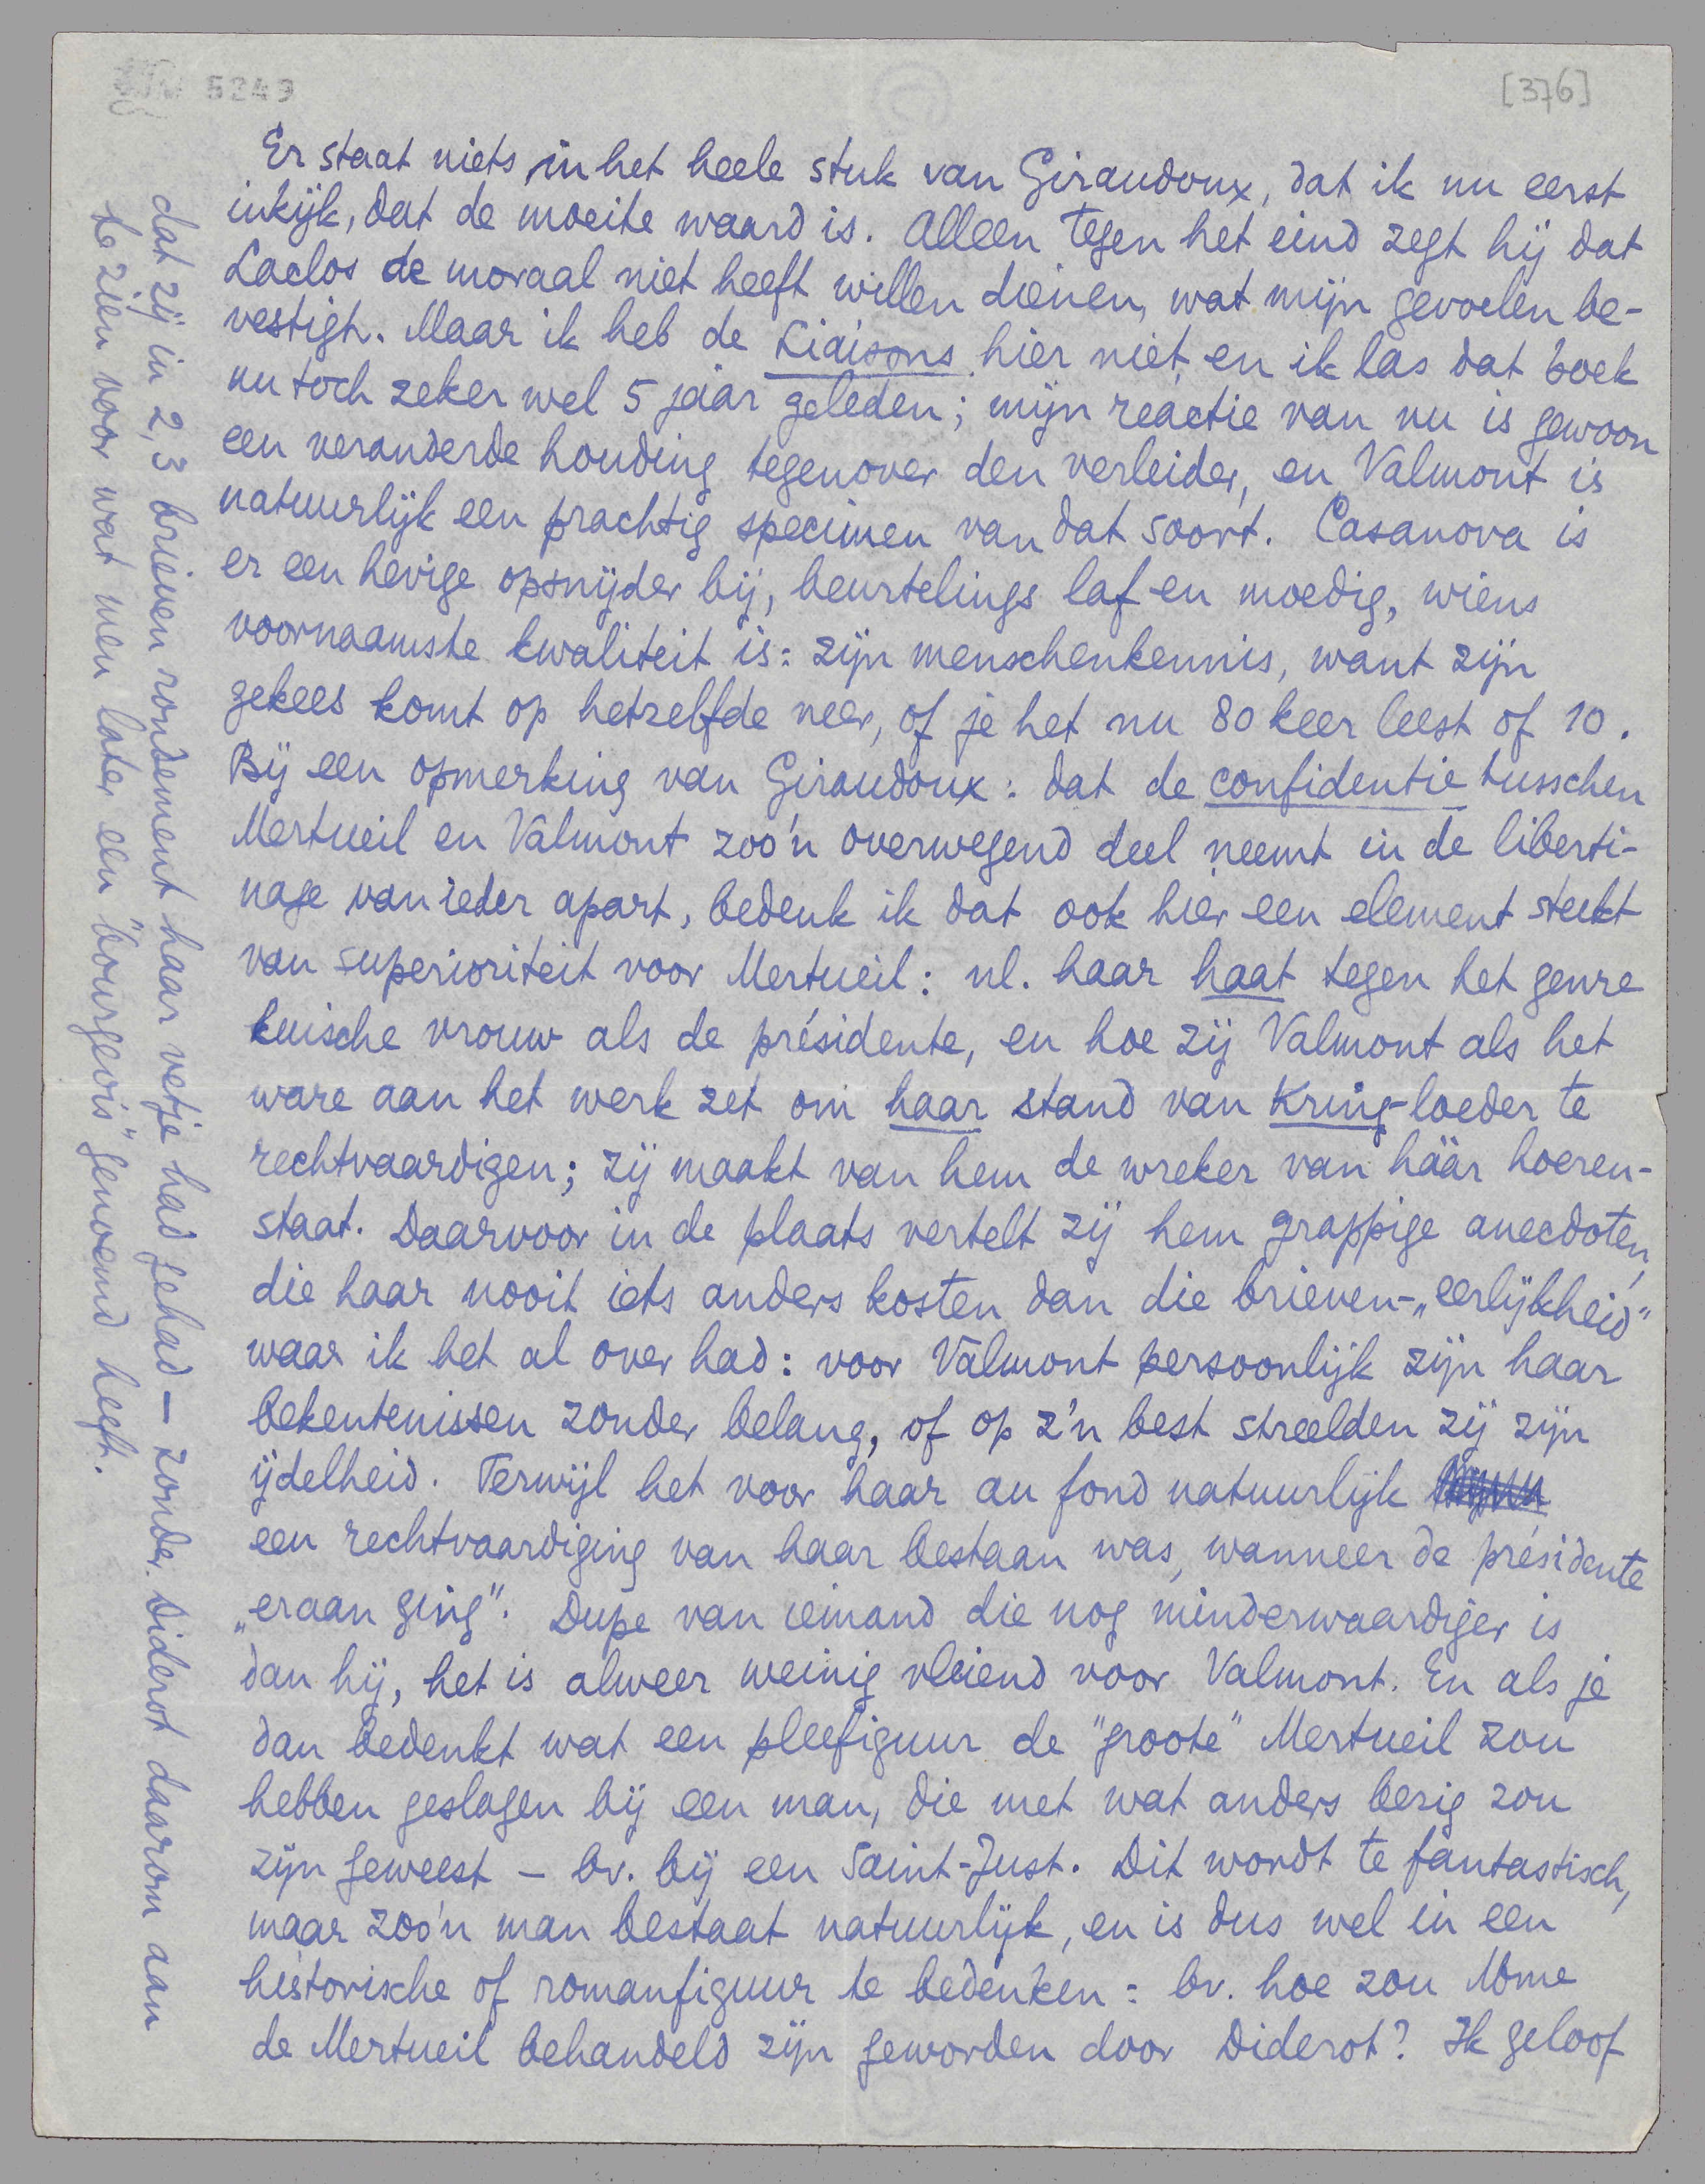 5249
[376]
Er staat niets in het heele stuk van Giraudoux, dat ik nu eerst
inkijk, dat de moeite waard is. Alleen tegen het eind zegt hij dat
Laclos de moraal niet heeft willen dienen, wat mijn gevoelen be-
vestigt. Maar ik heb de Liaisons hier niet, en ik las dat boek
nu toch zeker wel 5 jaar geleden; mijn reactie van nu is gewoon
een veranderde houding tegenover den verleider, en Valmont is
natuurlijk een prachtig specimen van dat soort. Casanova is
er een hevige opsnijder bij, beurtelings laf en moedig, wiens
voornaamste kwaliteit is: zijn menschenkennis, want zijn
gekees komt op hetzelfde neer, of je het nu 80 keer leest of 10.
Bij een opmerking van Giraudoux: dat de confidentie tusschen
Mertueil en Valmont zoo'n overwegend deel neemt in de liberti-
nage van ieder apart, bedenk ik dat ook hier een element steekt
van superioriteit voor Mertueil: nl. haar haat tegen het genre
kuische vrouw als de présidente, en hoe zij Valmont als het
ware aan het werk zet om haar stand van Kring-loeder te
rechtvaardigen; zij maakt van hem de wreker van háár hoeren-
staat. Daarvoor in de plaats vertelt zij hem grappige anecdoten,
die haar nooit iets anders kosten dan die brieven-„eerlijkheid"
waar ik het al over had: voor Valmont persoonlijk zijn haar
bekentenissen zonder belang, of op z'n best streelden zij zijn
ijdelheid. Terwijl het voor haar au fond natuurlijk
een rechtvaardiging van haar bestaan was, wanneer de présidente
„eraan ging". Dupe van iemand die nog minderwaardiger is
dan hij, het is alweer weinig vleiend voor Valmont. En als je
dan bedenkt wat een pleefiguur de "groote" Mertueil zou
hebben geslagen bij een man, die met wat anders bezig zou
zijn geweest – bv. bij een Saint-Just. Dit wordt te fantastisch,
maar zoo'n man bestaat natuurlijk, en is dus wel in een
historische of romanfiguur te bedenken: bv. hoe zou Mme
de Mertueil behandeld zijn geworden door Diderot? Ik geloof
dat zij in 2, 3 brieven rondement haar vetje had gehad – zonder Diderot daarom aan
te zien voor wat men later een "bourgeois" genoemd heeft.